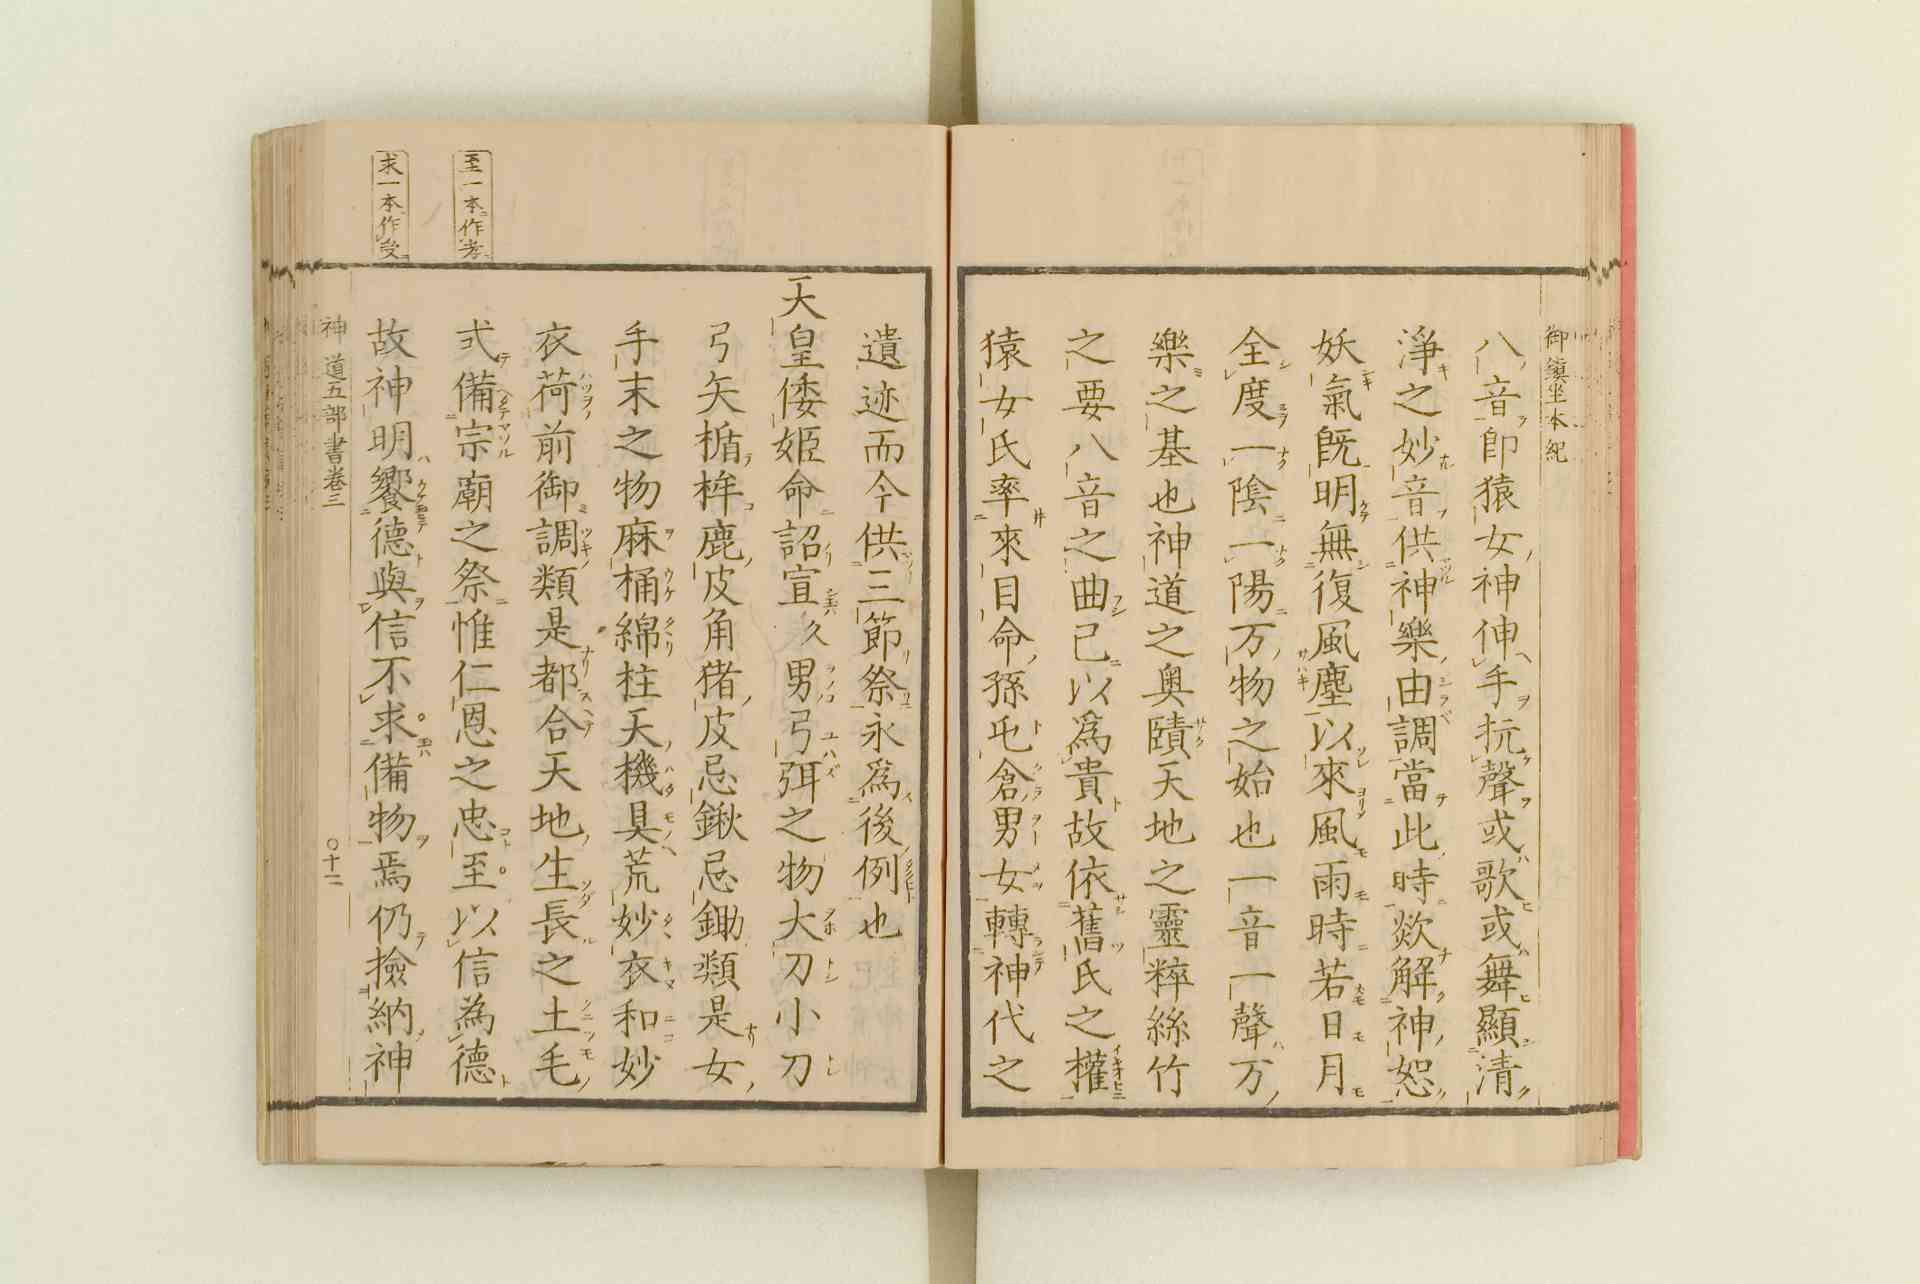 御鎮坐本紀
八音即猿女神伸手抗聲或歌或舞顯清
淨之妙音供神樂由調當此時歘解神怒
妖氣既明無復風塵以來風雨時若日月
全度一陰一陽万物之始也一音一聲万
樂之基也神道之奥賾天地之靈粹絲竹
之要八音之曲已以爲貴故依舊氏之權
猿女氏率來目命孫屯倉男女轉神代之
遺迹而今供三節祭永爲後例也
天皇倭姬命詔宣久男弓弭之物大刀小刀
弓矢楯桙鹿皮角猪皮忌鍬忌鋤類是女
手末之物麻桶綿柱天機具荒妙衣和妙
衣荷前御調類是都合天地生長之土毛
弍備宗廟之祭惟仁恩之忠至以信為德
故神明饗德與信不求備物焉仍撿納神
至一本作孝
求一本作受
神道五部書卷三
〇十二